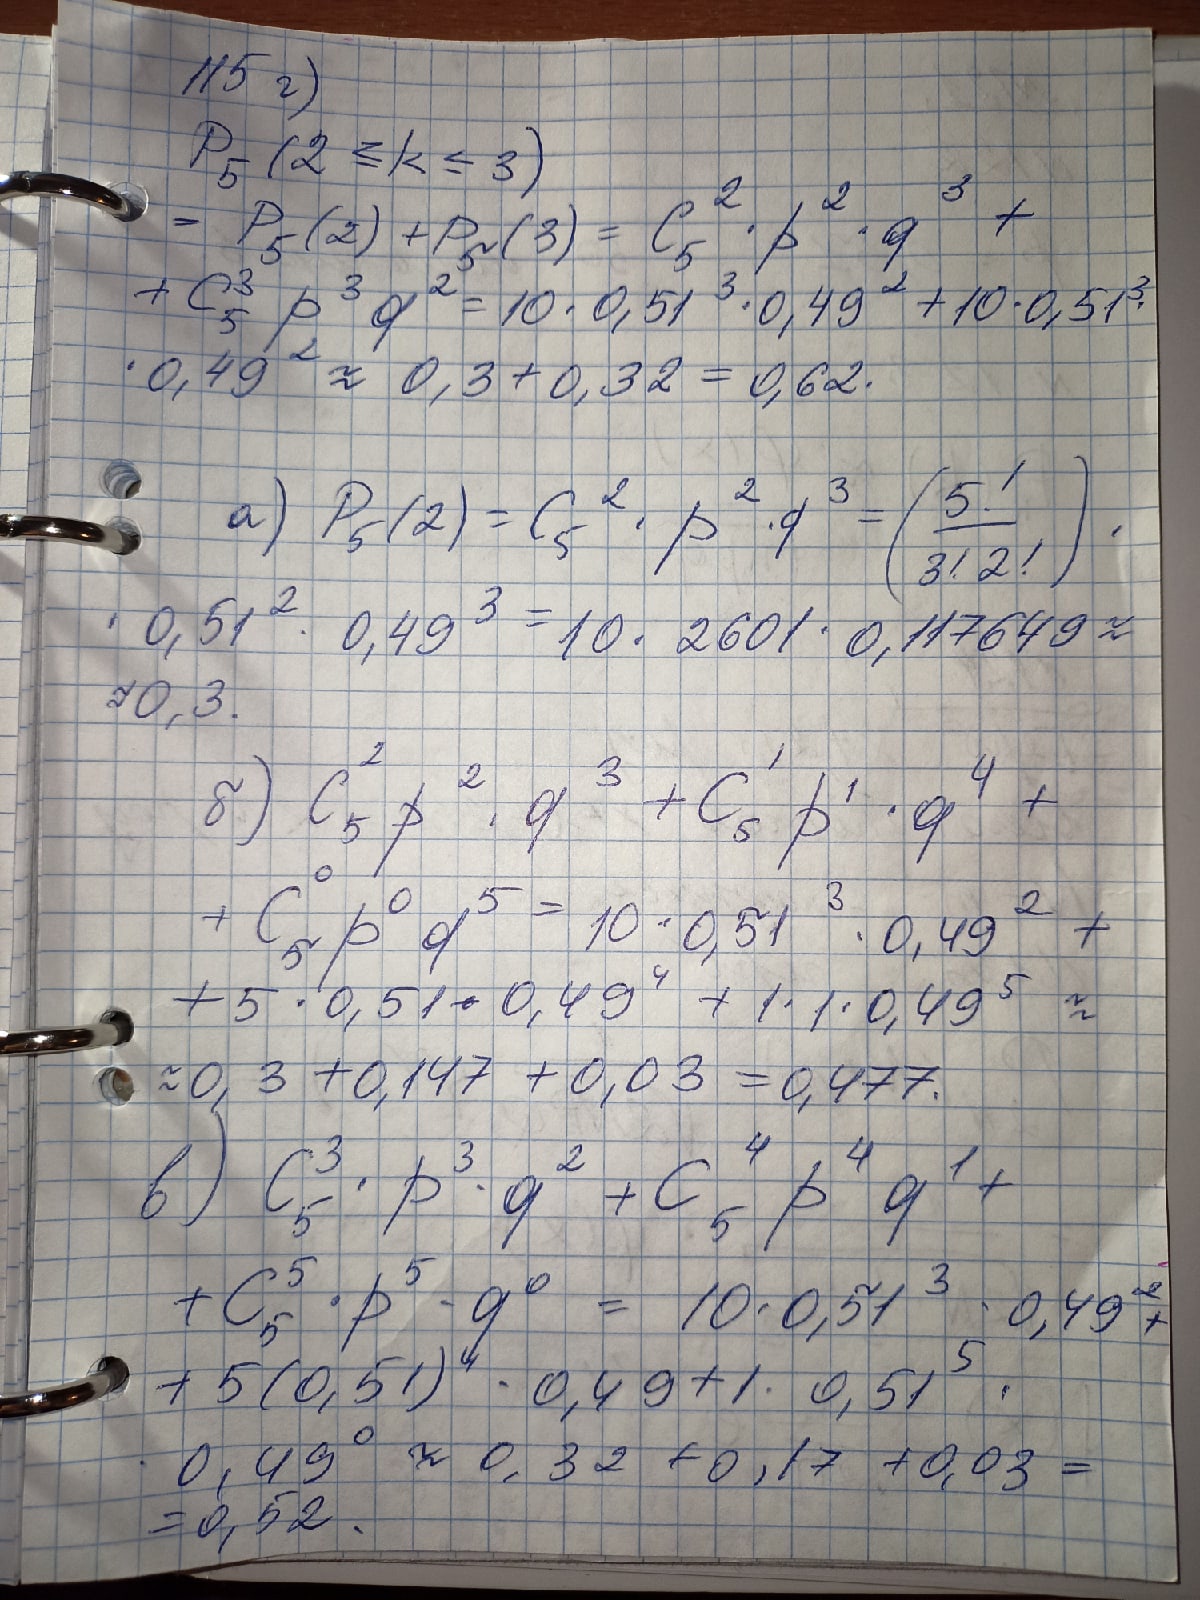 115 г)
P₅(2 ≤ k ≤ 3)
= P₅(2) + P₅(3) = C₅² · p² · q³ +
+ C₅³ p³ q² = 10 · 0,51³ · 0,49² + 10 · 0,51³ ·
· 0,49² ≈ 0,3 + 0,32 = 0,62.
а) P₅(2) = C₅² · p² · q³ = (5!/3! 2!) ·
· 0,51² · 0,49³ = 10 · 2601 · 0,117649 ≈
≈ 0,3.
б) C₅² p² · q³ + C₅¹ p¹ · q⁴ +
+ C₅⁰ p⁰ q⁵ = 10 · 0,51³ · 0,49² +
+ 5 · 0,51 · 0,49⁴ + 1 · 1 · 0,49⁵ ≈
≈ 0,3 + 0,147 + 0,03 = 0,477.
в) C₅³ · p³ · q² + C₅⁴ p⁴ q¹ +
+ C₅⁵ · p⁵ · q⁰ = 10 · 0,51³ · 0,49² +
+ 5(0,51)⁴ · 0,49 + 1 · 0,51⁵ ·
· 0,49⁰ ≈ 0,32 + 0,17 + 0,03 =
= 0,52.